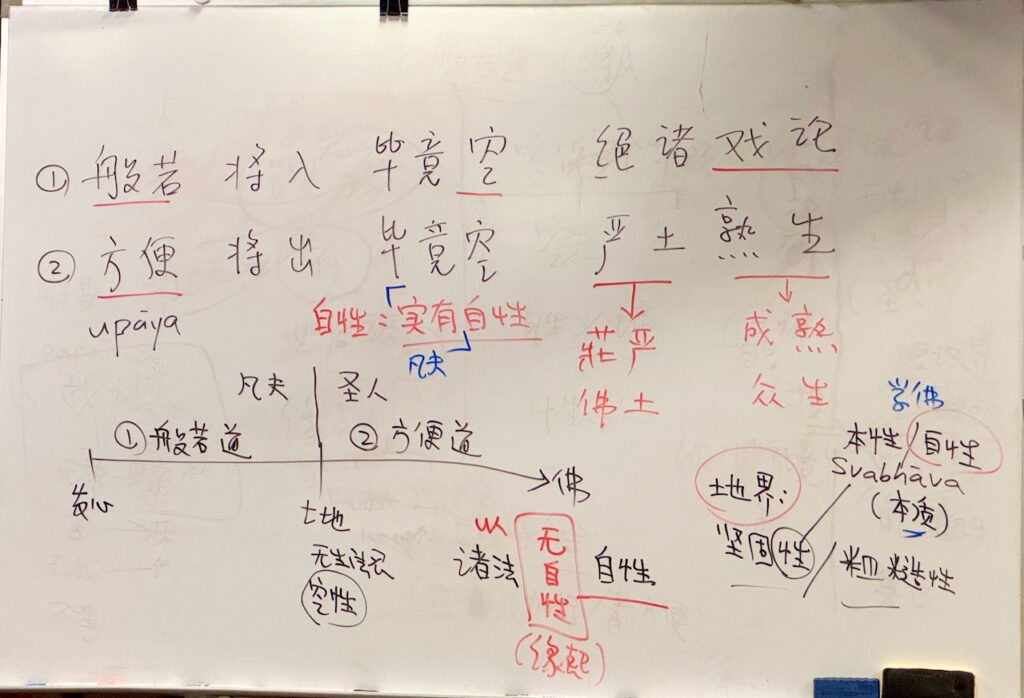 ① 般若 将入 毕竟空 绝诸戏论
② 方便 将出 毕竟空 严土 熟生
upāya
自性：「实有自性」
凡夫
莊严
佛土
成熟
众生
凡夫 圣人
① 般若道 ② 方便道
发心
佛
七地
无生法忍
空性
以
诸法
无自性
自性
(缘起)
学佛
本性/自性
Svabhāva
(本质)
土地界：
坚固性/粗糙性